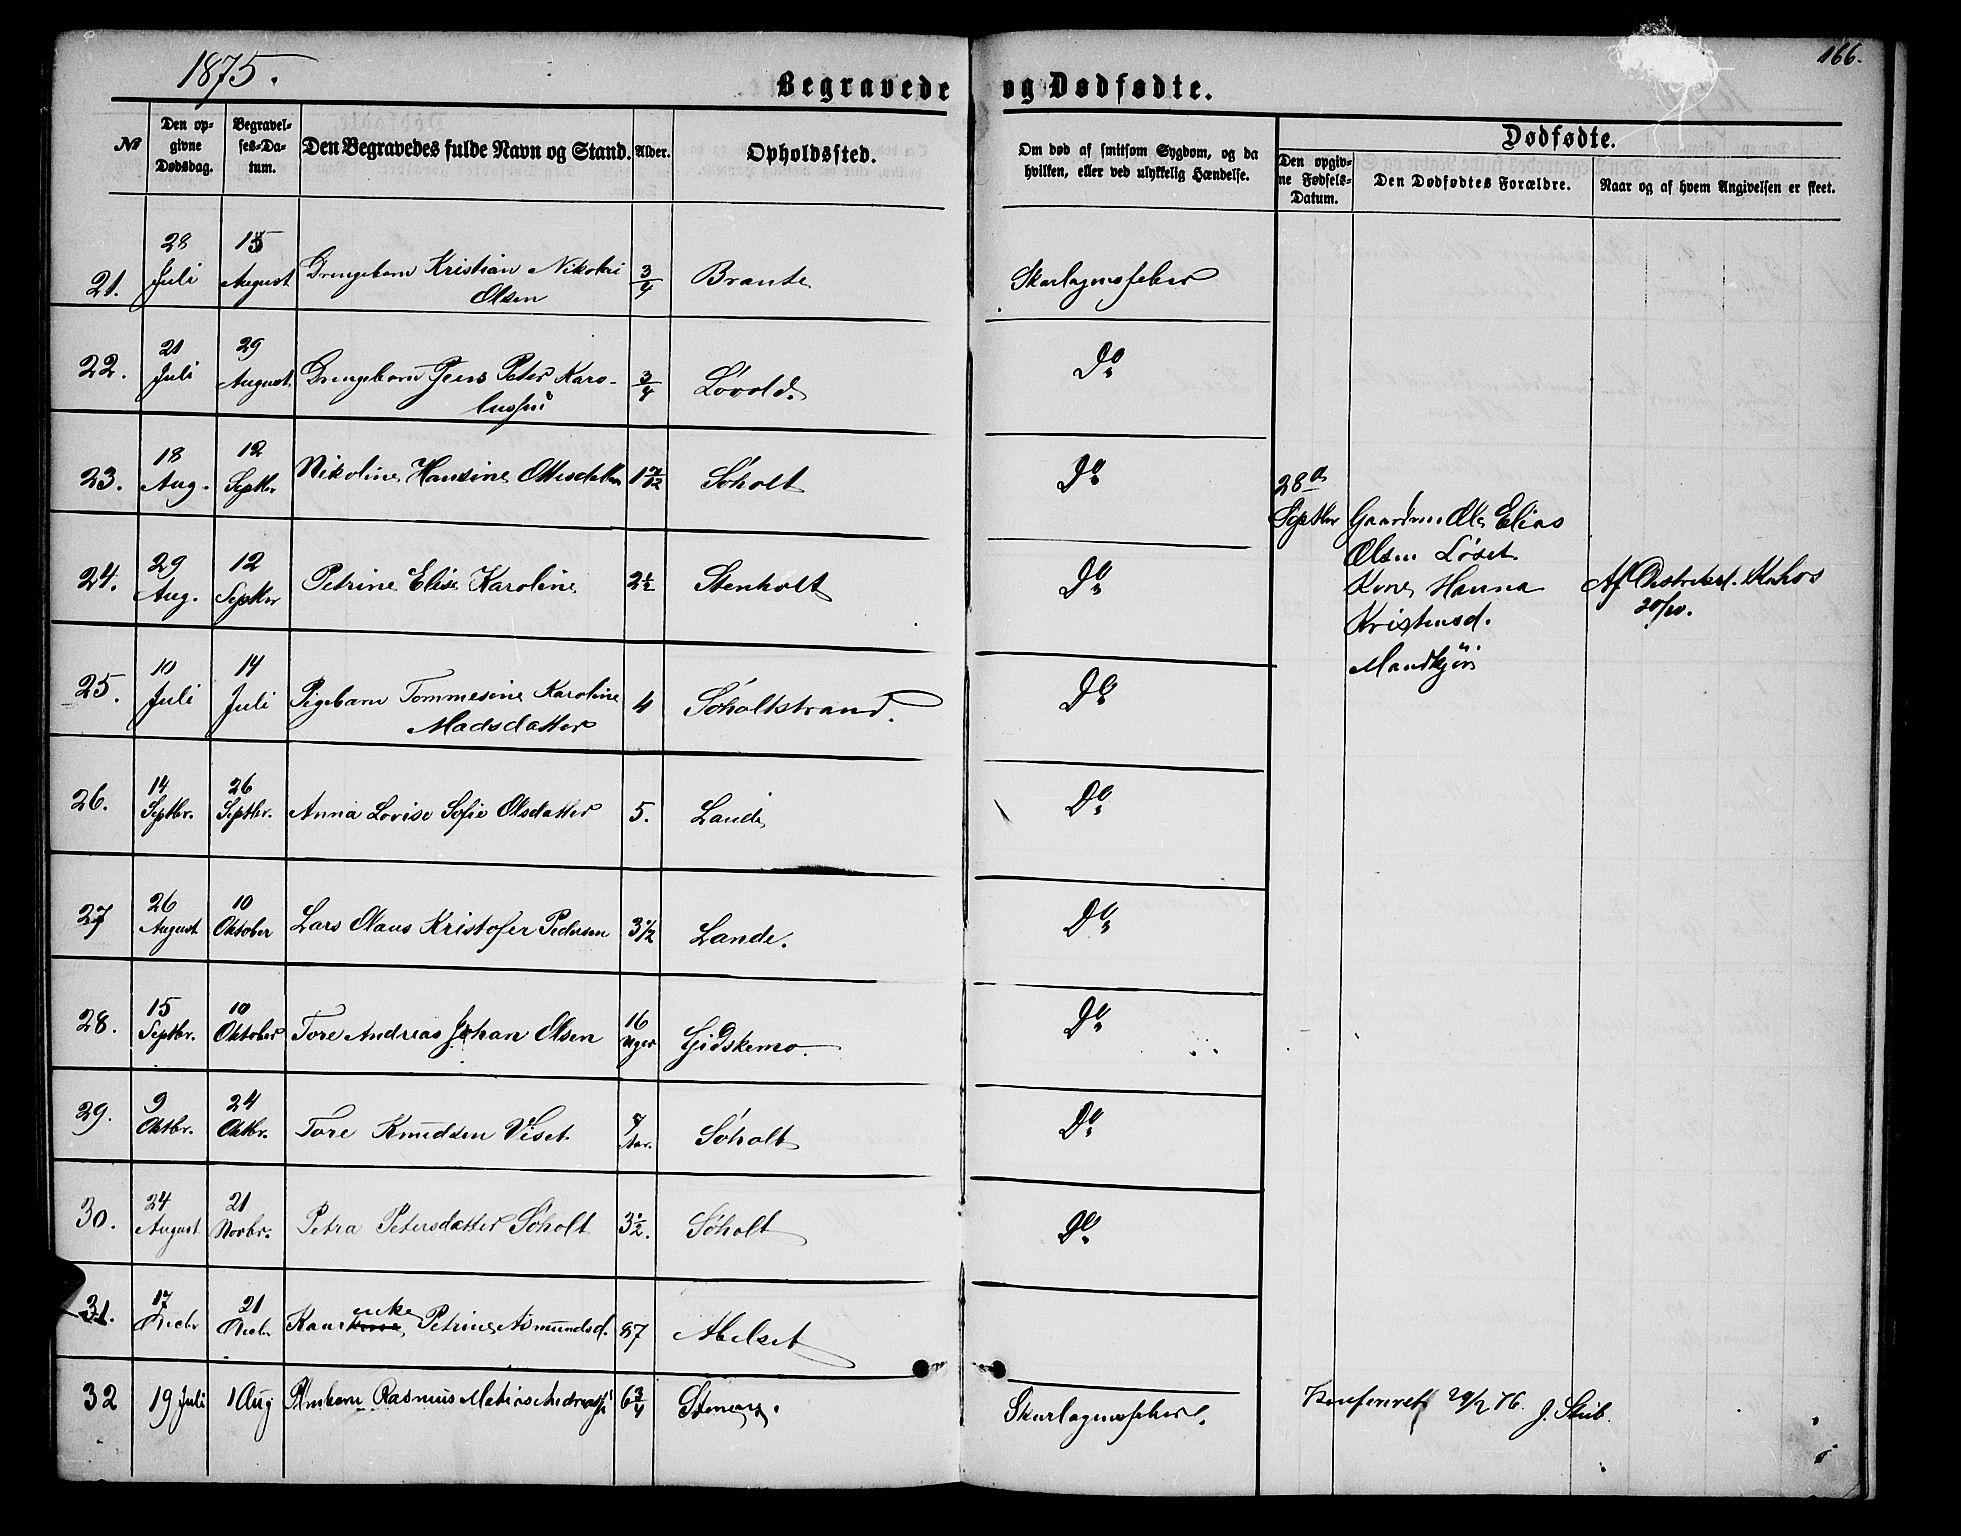 1875.
166.
Begravede og Dødfødte.
№
Den op-
givne
Dødsdag.
Begravel-
ses-Da-
tum.
Den Begravedes fulde Navn og Stand.
Alder.
Opholdssted.
Om død af smitsom Sygdom, og da
hvilken, eller ved ulykkelig Hændelse.
Dødfødte.
Den opgiv-
ne Fødsels-
Datum.
Den Dødfødtes Forældre.
Naar og af hvem Angivelsen er skeet.
21. 28 Juli 15 August Drengebarn Kristian Nikolai
Olsen 3/4 Brante Skarlagensfeber
22. 21 Juli 29 August Drengebarn Jens Peter Karo-
lussen 3/4 Løvold. Do
23. 18 Aug. 12 Septbr Nikoline Hansine Ottisdatter 1 7/12 Søholt Do
24. 29 Aug. 12 Septbr Petrine Elise Karoline 2 1/2 Stenholt Do
28de
Septbr
Gaardm Ole Elias
Olsen Løset
Kone Hanna
Kristensd.
Af Distriktsl.
20/10.
25. 10 Juli 14 Juli Pigebarn Tommesine Karoline
Madsdatter 4 Søholtstrand. Do
26. 14 Septbr. 26 Septbr. Anna Lovise Sofie Olsdatter 5. Lande Do
27 26 August 10 Oktober Lars Olaus Kristofer Pedersen 3 1/2 Lande. Do
28. 15 Septbr. 10 Oktober Tore Andreas Johan Olsen 16 Uger Gidskemo. Do
29. 9 Oktbr. 24 Oktbr. Tore Knudsen Viset 7 Aar. Søholt Do
30. 24 August 21 Novbr. Petra Petersdatter Søholt 3 1/2. Søholt Do
31. 17 Decbr 21 Decbr Kaarenke Petrine Asmundsd. 87 Abelset
32 19 Juli 1 Aug Rasmus Matias 6 3/4 Skarlagensfeber.
Konfereret 29/2 76. J. Stub.